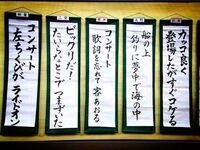 カッコ良く
登場したがすぐコケる
船の上
釣りに夢中で海の中
コンサート
歌詞を忘れて客あおる
ビックリだ!
たいらなとこでつまずいた
コンサート
左ちくびがライドオン